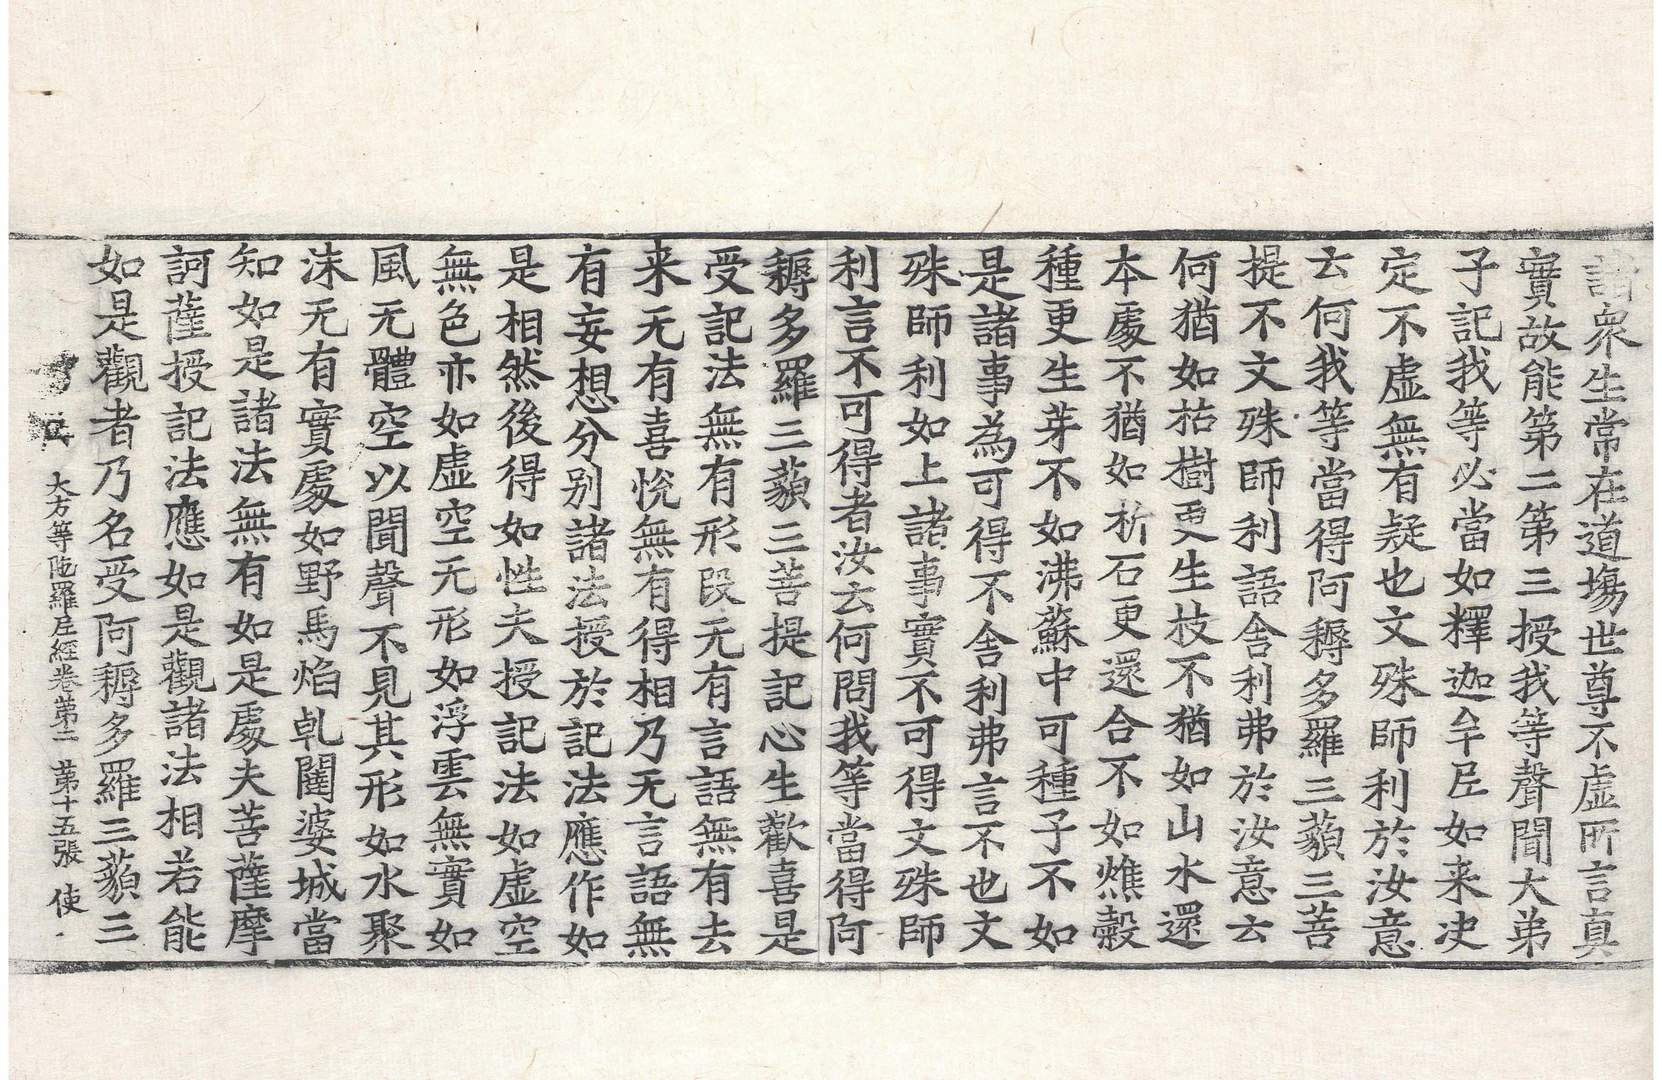 諸衆生常在道場世尊不虛所言真
實故能第二第三授我等聲聞大弟
子記我等必當如釋迦牟尼如来决
定不虛無有疑也文殊師利於汝意
云何我等當得阿耨多羅三藐三菩
提不文殊師利語舍利弗於汝意云
何猶如枯樹更生枝不猶如山水還
本處不猶如析石更還合不如燋糓
種更生芽不如沸蘇中可種子不如
是諸事為可得不舍利弗言不也文
殊師利如上諸事實不可得文殊師
利言不可得者汝云何問我等當得阿
耨多羅三藐三菩提記心生歡喜是
受記法無有形段无有言語無有去
来无有喜悅無有得相乃无言語無
有妄想分别諸法授於記法應作如
是相然後得如性夫授記法如虛空
無色亦如虛空无形如浮雲無實如
風无體空以聞聲不見其形如水聚
沫无有實處如野馬焰乹闥婆城當
知如是諸法無有如是處夫菩薩摩
訶薩授記法應如是觀諸法相若能
如是觀者乃名受阿耨多羅三藐三
大方等陁羅尼經卷第二 第十五張 使